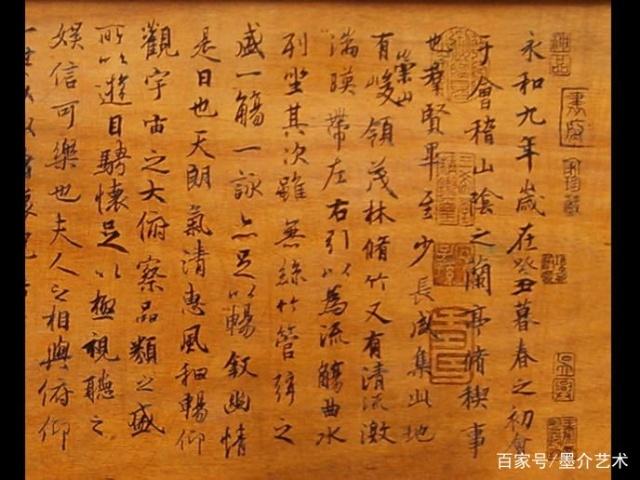 永和九年歲在癸丑暮春之初會
于會稽山陰之蘭亭脩禊事
也羣賢畢至少長咸集此地
有崇山峻領茂林脩竹又有清流激
湍暎帶左右引以為流觴曲水
列坐其次雖無絲竹管弦之
盛一觴一詠亦足以暢敘幽情
是日也天朗氣清惠風和暢仰
觀宇宙之大俯察品類之盛
所以遊目騁懷足以極視聽之
娛信可樂也夫人之相與俯仰
百家号/墨介艺术